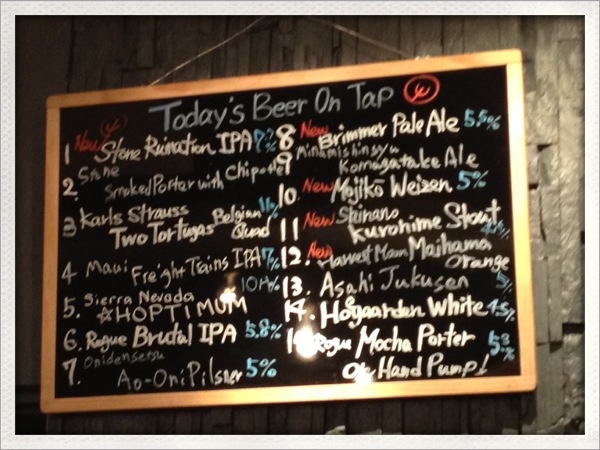 Today's Beer On Tap
1 New Stone Ruination IPA 7.7%
2. Stone
Smoked Porter with Chipotle
3 Karls Strauss
Two Tortugas Belgian Quad 11%
4 Maui Freight Trains IPA 7%
5. Sierra Nevada
HOPTIMUM 10.4%
6. Rogue Brutal IPA 5.8%
7. Onidensetsu
Ao-Oni Pilsner 5%
8 New Brimmer Pale Ale 5.5%
9 Minamishinsyu
Komagatake Ale
10. New Mojiko Weizen 5%
11 New Shinano
Kurohime Stout
12. New Harvest Moon Maihama
Orange
13. Asahi Jukusen 5%
14. Hogaarden White 4.5%
Rogue Mocha Porter 5.3%
On Hand Pump!